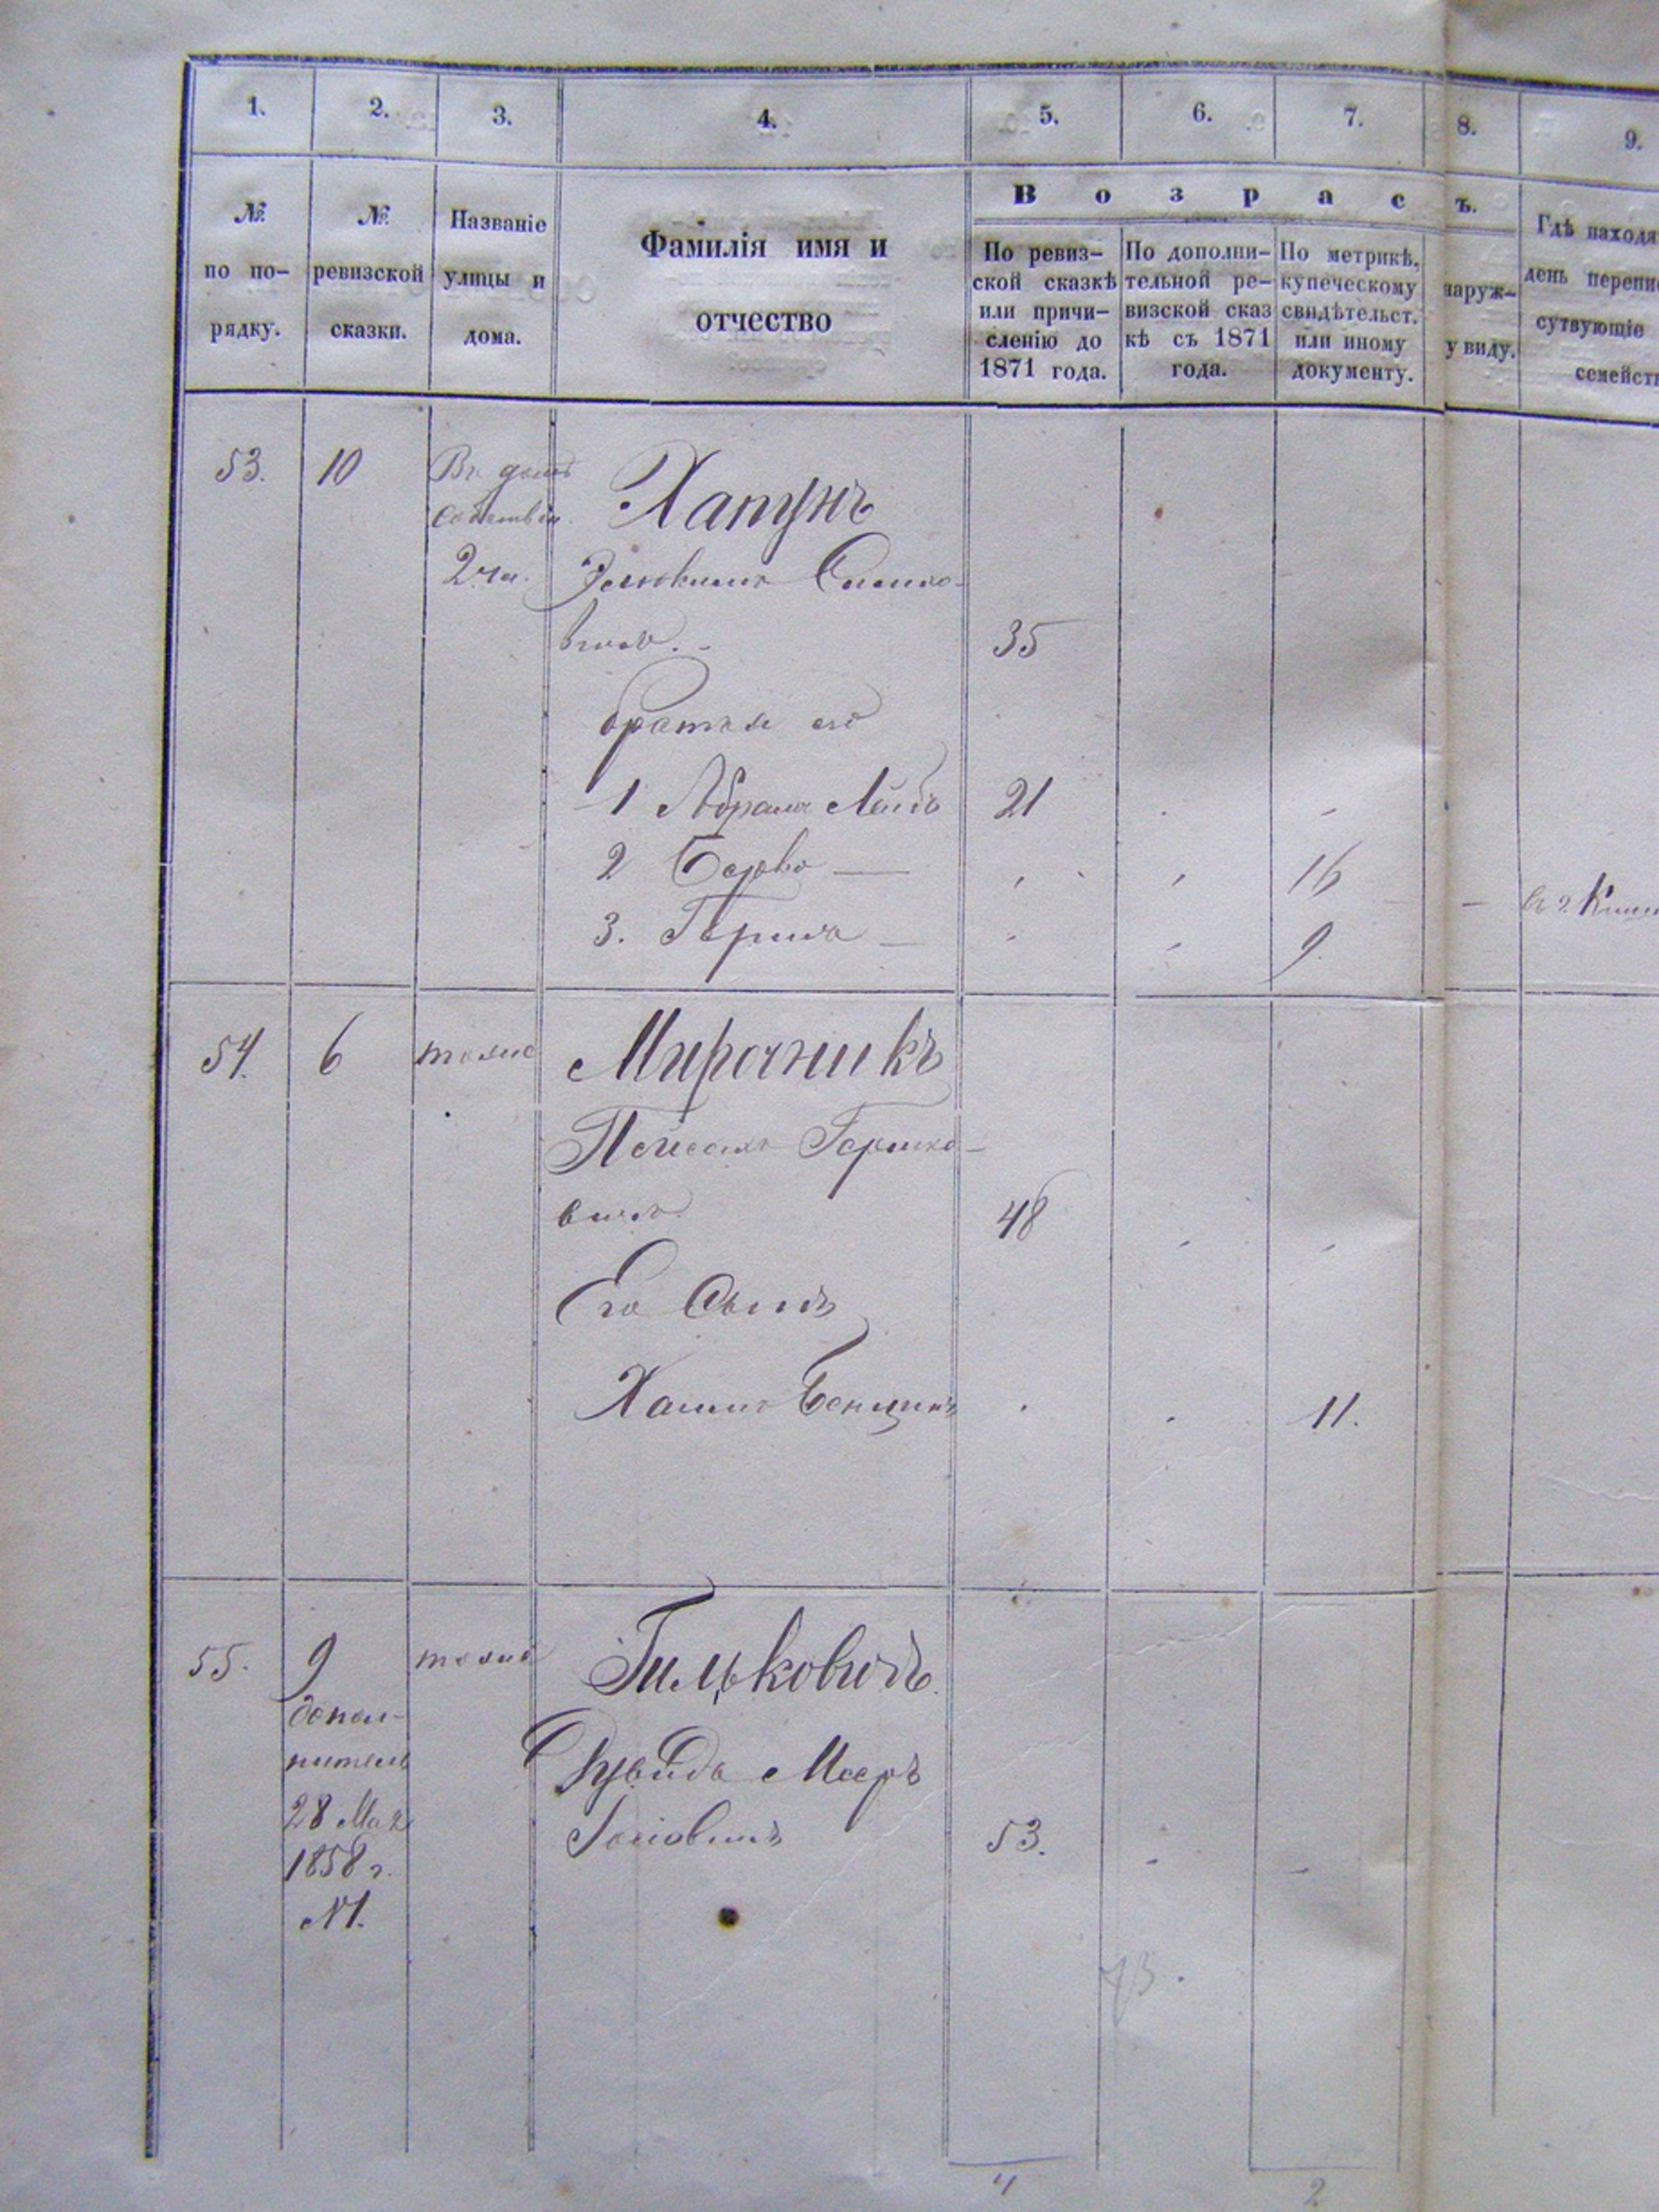 1. 2. 3. 4. 5. 6. 7. 8. 9.
№ по по-рядку.
№ ревизской сказки.
Названіе улицы и дома.
Фамилія имя и
отчество
Возрастъ.
По ревиз-
ской сказкѣ
или причи-
сленію до
1871 года.
По дополни-
тельной ре-
визской сказ
кѣ съ 1871
года.
По метрикѣ,
купеческому
свидѣтельст.
или иному
документу.
наруж-
у виду.
Гдѣ находя
день перепи
сутвующіе
семейст
53. 10 Въ домѣ Хапунъ
2 ча.
вичъ. 35
братья его
1 Абрамъ Лейбъ 21
2 Берко 16
3. Гершъ 9.
54. 6 тоже Мирочникъ
Пейсахъ Гершко-
вичъ 48
Его Сынъ
Хаимъ Бенционъ 11.
55. 9 тоже Гильковичъ.
дополнитель
28 Мая
1858 г.
№1.
Дувидъ Мееръ
Іосіовичъ 53.
73.
4 2